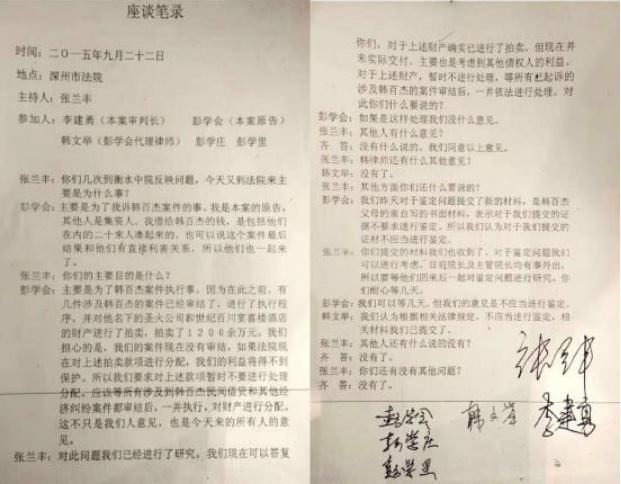 座谈笔录
时间：二〇一五年九月二十二日
地点：深州市法院
主持人：张兰丰
参加人：李建勇（本案审判长） 彭学会（本案原告）
韩文举（彭学会代理律师） 彭学庄 彭学里
张兰丰：你们几次到衡水中院反映问题，今天又到法院来主
要是为什么事？
彭学会：主要是为了我诉韩百杰案件的事。我是本案的原告，
其他人是集资人。我借给韩百杰的钱，是包括他们
在内的二十来人凑起来的。也可以说这个案件最后
结果和他们有直接利害关系，所以他们也一起来
了。
张兰丰：你们的主要目的是什么？
彭学会：主要是为了韩百杰案件执行事。因为在此之前，有
几件涉及韩百杰的案件已经审结了，进行了执行程
序，并对他名下的圣火公司和世纪百川宴喜楼酒店
的财产进行了拍卖，拍卖了1200余万元，我们
担心的是，我们的案件现在没有审结，如果法院现
在对上述拍卖款项进行分配，我们的利益将得不到
保护。所以我们要求对上述款项暂时不要进行处理
分配，应该等所有涉及到韩百杰民间借贷和其他经
济纠纷案件都审结后，一并执行，对财产进行分配。
这不只是我们人意见，也是今天来的所有人的意
见。
张兰丰：对此问题我们已经进行了研究。我们现在可以答复
你们，对于上述财产确实已进行了拍卖。但现在并
未实际交付。主要也是考虑到其他债权人的利益。
对于上述财产，暂时不进行处理，等所有已起诉的
涉及韩百杰的案件审结后，一并依法进行处理。对
此你们什么要说的？
彭学会：如果是这样处理我们没什么意见。
张兰丰：其他人有什么意见？
齐 答：没有什么说的。我们同意以上意见。
张兰丰：韩律师还有什么其他意见？
韩文举：没有了。
张兰丰：其他方面你们还什么要说的？
彭学会：我们昨天对于鉴定问题提交了新的材料，是韩百杰
父母的亲自写的书面材料，表示对于我们提交的证
据不要求进行鉴定。所以我们认为对于我们提交的
证材不应当进行鉴定。
张兰丰：你们提交的材料我们也收到了，对于鉴定问题我们
可以进行考虑。目前院长及主管院长均有事外出，
所以要等他们回来后一起对鉴定问题进行研究。你
们耐心等几天。
彭学会：我们可以等几天。但我们的意见是不应当进行鉴定。
韩文举：我们认为根据相关法律规定，不应当进行鉴定，相
关材料我们已提交了。
张兰丰：其他人还有什么说的没有？
齐 答：没有了。
张兰丰：你们还有没有其他问题？
齐 答：没有了。
彭学会 韩文举 李建勇
彭学庄
彭学里